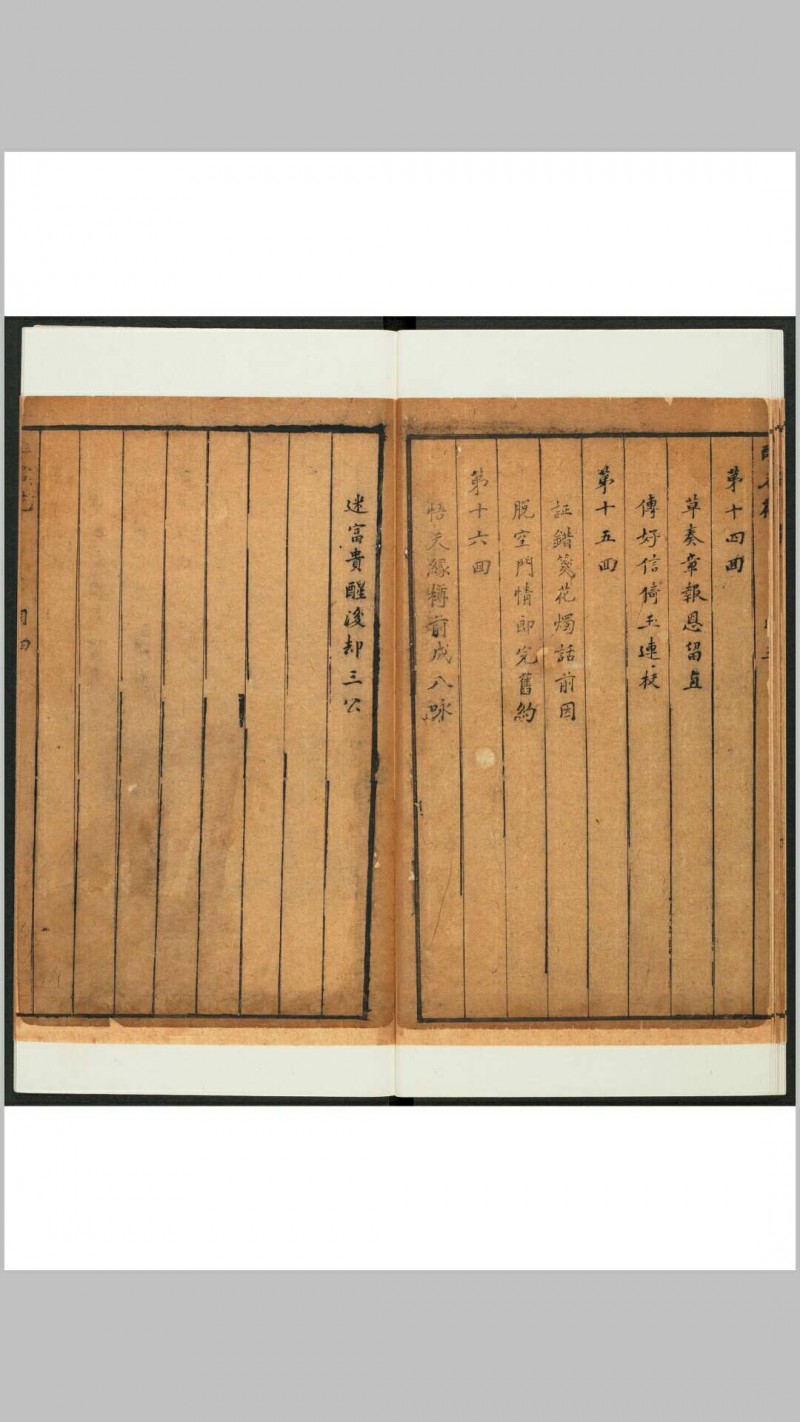 第十四回
草奏章報恩留直
傳好信倚玉連枝
第十五回
証錯箋花燭話前因
脫空門情郎完舊約
第十六回
悟天緣樽前成八咏
迷富貴醒後却三公